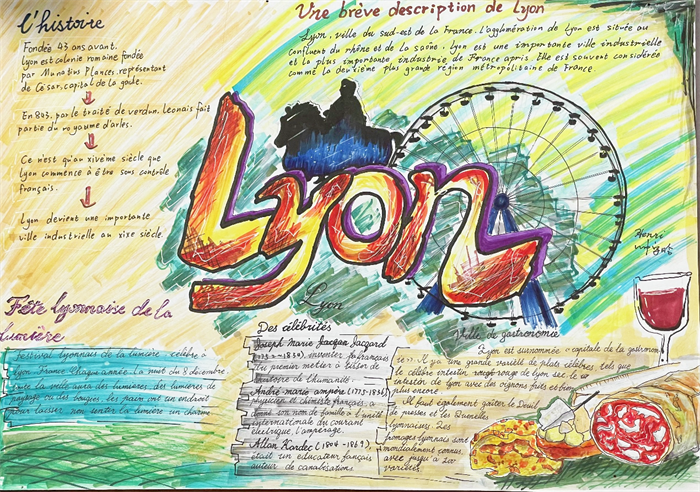 l'histoire
Fondée 43 ans avant.
Lyon est colonie romaine fondée
par Munatius Plancus, représentant
de César, capital de la gaule.
En 843, par le traité de verdun. Leonais fait
partie du royaume d'arles.
Ce n'est qu'au xivème siècle que
Lyon commence à être sous contrôle
français.
Lyon devient une importante
ville industrielle au xixe siècle.
Une brève description de Lyon
Lyon, ville du sud-est de la France. L'agglomération de Lyon est située au
confluent du rhône et de la saône. Lyon est une importante ville industrielle
et la plus importante industrie de France apris. Elle est souvent considérée
comme la deuxième plus grande région métropolitaine de France.
Lyon
Henri
Lyon
Fête lyonnaise de la
lumière
Festival lyonnais de la lumière, célébré à
Lyon, France chaque année. La nuit du 8 décembre
toute la ville aura des lumières, des lumières de
paysage ou des bougies. les pain voit un endroit
pour laisser non sentir la lumière un charme
Des célébrités
Joseph Marie Jacquard
(1752-1834), inventeur français
du premier métier à tisser de
l'histoire de l'humanité.
André-marie ampère (1775-1836)
physicien et chimiste français, a
donné son nom de famille à l'unité
internationale du courant
électrique, l'ampérage.
Allan Kardec (1804-1869)
était un éducateur français
auteur de canalisations
Ville de gastronomie
Lyon est surnommée « capitale de la gastronomie
». Il y a une grande variété de plats célèbres, tels que
le célèbre intestin rouge de Lyon, sec le
intestin de Lyon avec des oignons frits et bien
plus encore
Il faut également goûter le Deuil
de presse et les Quenelles
lyonnaises. Les
fromages lyonnais sont
mondialement connus
avec jusqu'à 200
variétés